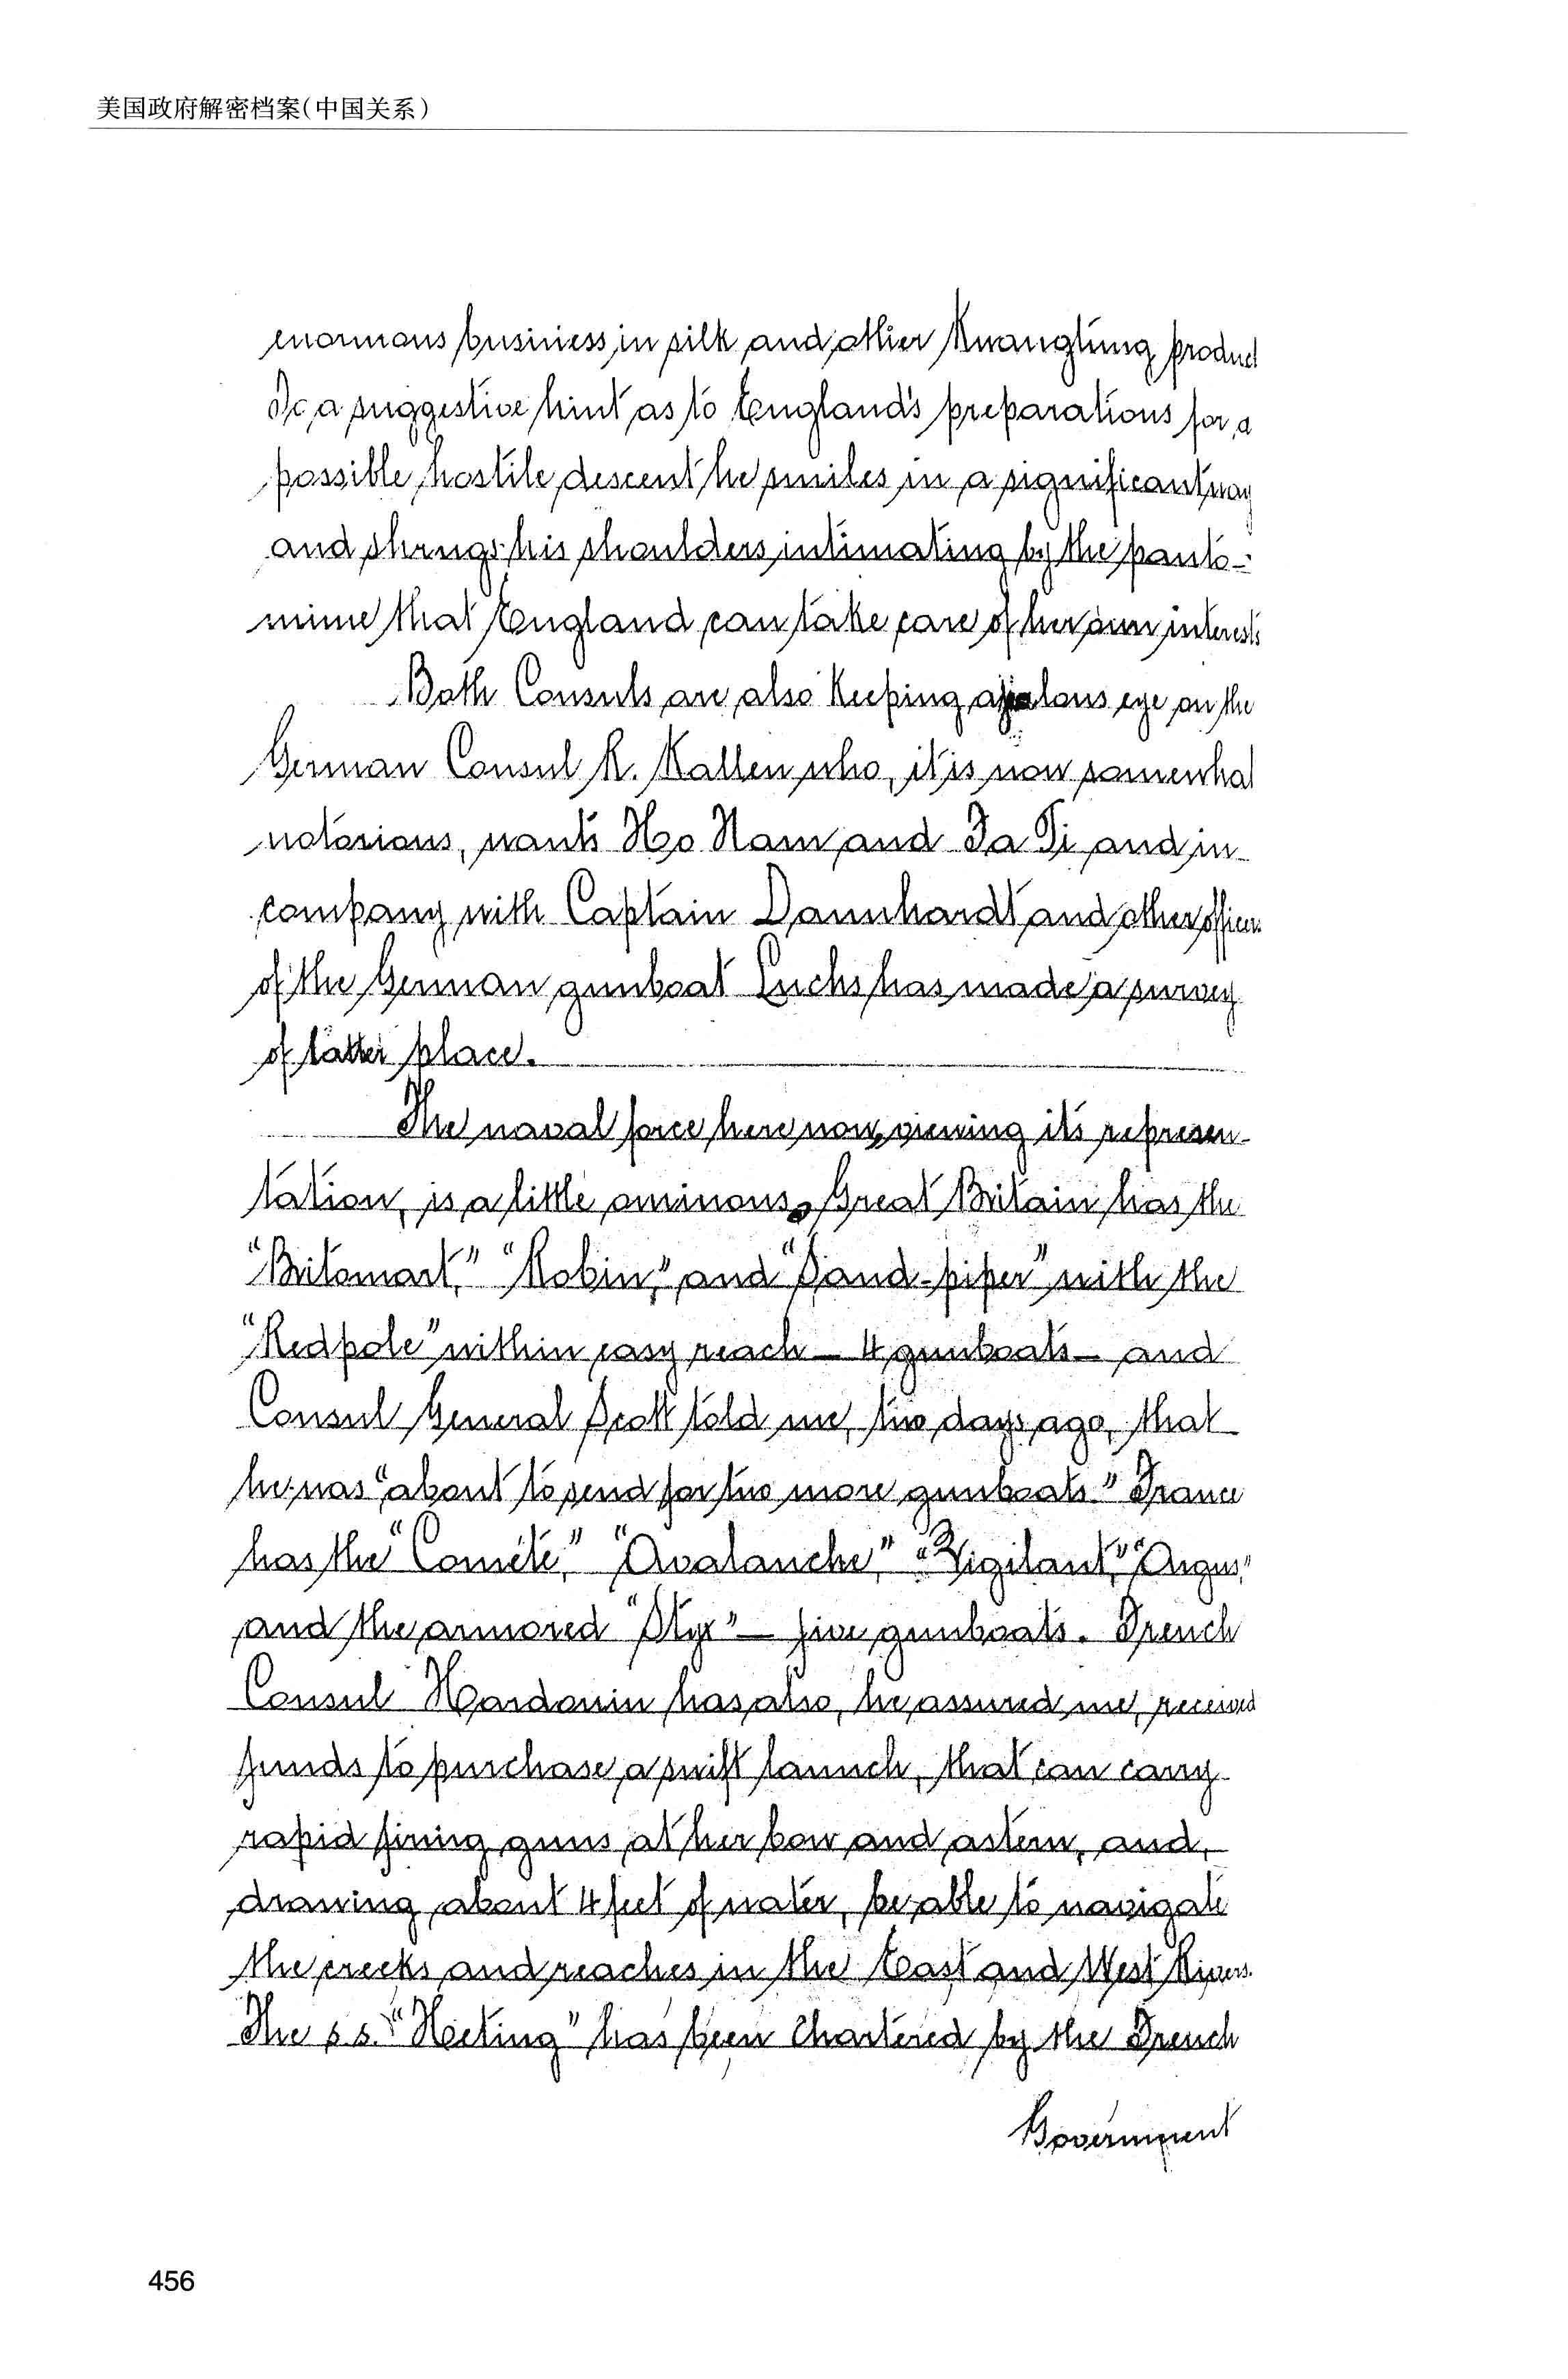 美国政府解密档案(中国关系)
enormous business in silk and other Kwangtung product
To a suggestive hint as to England's preparations for a
possible hostile descent he smiles in a significant way
and shrugs his shoulders intimating by the panto-
mime that England can take care of her own interests
Both Consuls are also keeping a jealous eye on the
German Consul R. Kallen who, it is now somewhat
notorious, wants Ho Nam and Fa Ti and in
company with Captain Dannhardt and other officers
of the German gunboat Luchs has made a survey
of latter place.
The naval force here now, viewing its represen-
tation, is a little ominous. Great Britain has the
"Britomart," "Robin," and "Sand-piper" with the
"Redpole" within easy reach — 4 gunboats — and
Consul General Scott told me, two days ago, that
he was "about to send for two more gunboats." France
has the "Comète," "Avalanche," "Vigilant," "Argus,"
and the armored "Styx" — five gunboats. French
Consul Hardouin has also, he assured me, received
funds to purchase a swift launch, that can carry
rapid firing guns at her bow and astern, and,
drawing about 4 feet of water, be able to navigate
the creeks and reaches in the East and West Rivers.
The s.s. "Heeting" has been chartered by the French
Government
456